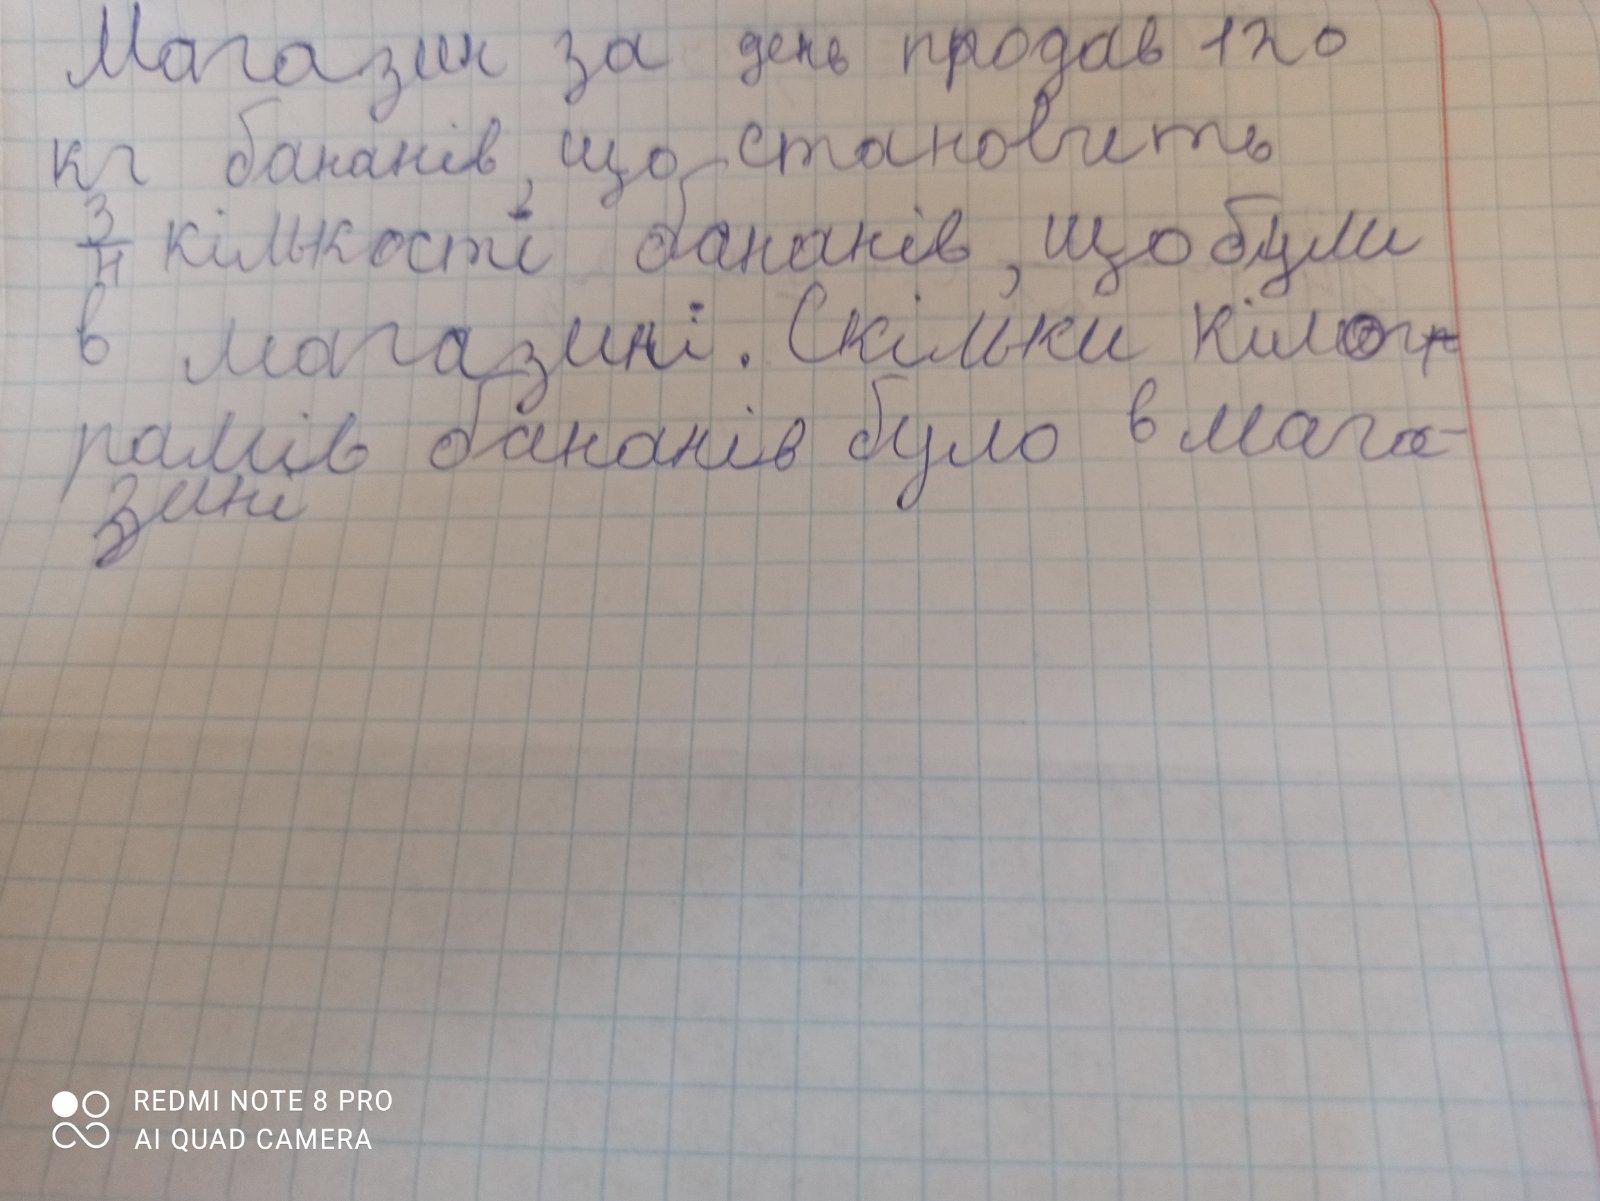 Магазин за день продав 120
кг бананів, що становить
3/4 кількості бананів, що були
в магазині. Скільки кілог-
рамів бананів було в мага-
зині
REDMI NOTE 8 PRO
AI QUAD CAMERA